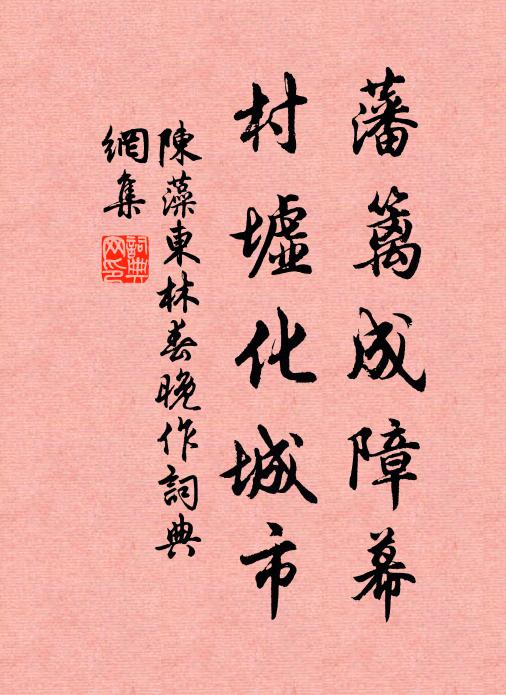 藩籬成障幕
村墟化城市
陳藻東林春晚作詞典
網集
詞典
网印